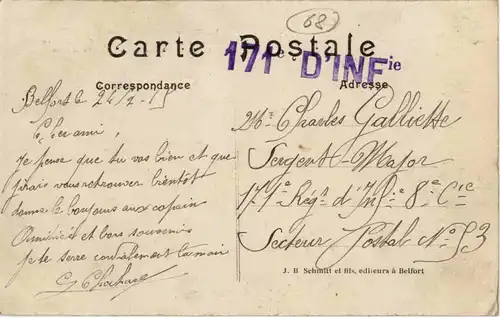 68
Carte Postale
171e D'INFie
Correspondance
Adresse
Belfort le 24/2-15
Cher ami,
Je pense que tu vas bien et que
j'irais vous retrouver bientôt
donne le bonjour aux copain
Amitiés et bons souvenirs
je te serre cordialement la main
Mr Charles Galliette
Sergent-Major
171e Régt d'Infie 8e Cie
Secteur Postal No 53
J. B Schmitt et fils, editeurs à Belfort